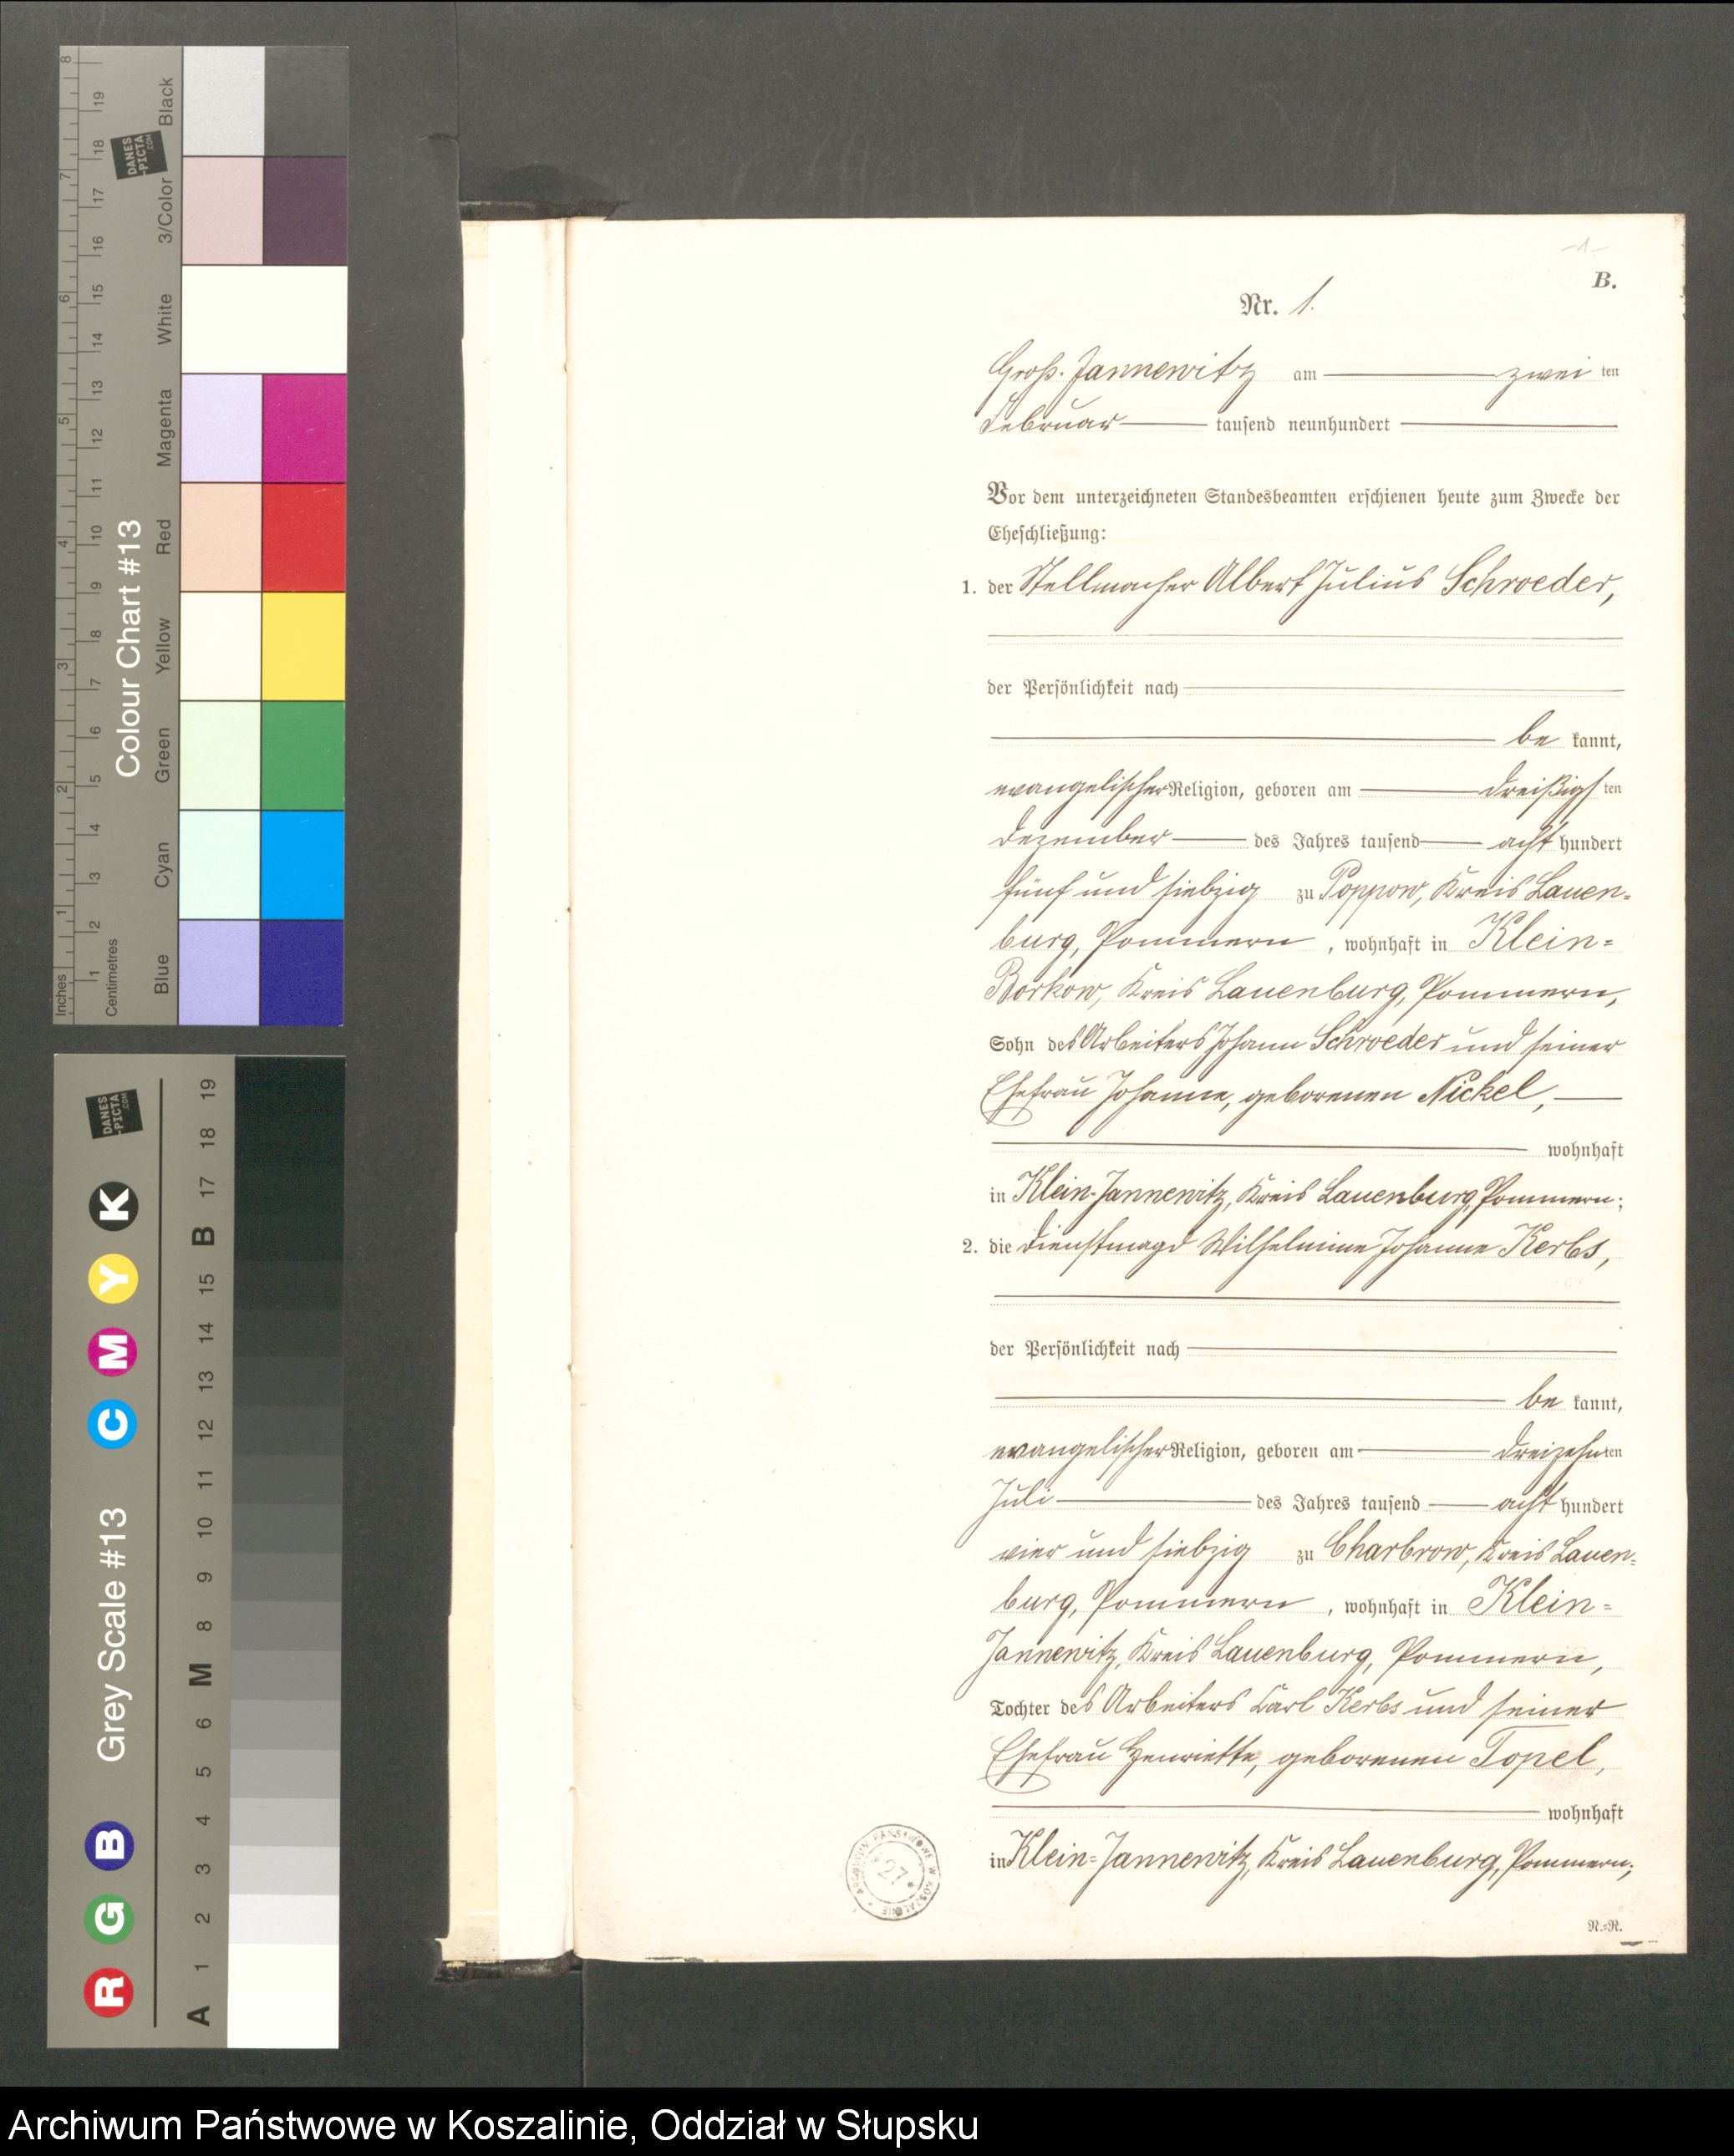 -1-
B.
Nr. 1.
Groß-Jannewitz am zwei ten
Februar tausend neunhundert
Vor dem unterzeichneten Standesbeamten erschienen heute zum Zwecke der
Eheschließung:
1. der Stellmacher Albert Julius Schroeder,
der Persönlichkeit nach
be kannt,
evangelischer Religion, geboren am dreißigs ten
Dezember des Jahres tausend acht hundert
fünf und siebzig zu Poppow, Kreis Lauen=
burg, Pommern, wohnhaft in Klein=
Borkow, Kreis Lauenburg, Pommern,
Sohn des Arbeiters Johann Schroeder und seiner
Ehefrau Johanne, geborenen Nickel,
wohnhaft
in Klein-Jannewitz, Kreis Lauenburg, Pommern;
2. die Dienstmagd Wilhelmine Johanne Kerbs,
der Persönlichkeit nach
be kannt,
evangelischer Religion, geboren am dreizehn ten
Juli des Jahres tausend acht hundert
vier und siebzig zu Charbrow, Kreis Lauen=
burg, Pommern, wohnhaft in Klein=
Jannewitz, Kreis Lauenburg, Pommern,
Tochter des Arbeiters Carl Kerbs und seiner
Ehefrau Henriette, geborenen Topel,
wohnhaft
in Klein=Jannewitz, Kreis Lauenburg, Pommern;
N.=R.
ARCHIWUM PAŃSTWOWE W KOSZALINIE
27
8 7 6 5 4 3 2 1 Inches
19 18 17 16 15 14 13 12 11 10 9 8 7 6 5 4 3 2 1 Centimetres
DANES
-PICTA
.COM
Colour Chart #13
Black
3/Color
White
Magenta
Red
Yellow
Green
Cyan
Blue
DANES
-PICTA
.COM
Grey Scale #13
R G B C M Y K
A 1 2 3 4 5 6 M 8 9 10 11 12 13 14 15 B 17 18 19
Archiwum Państwowe w Koszalinie, Oddział w Słupsku